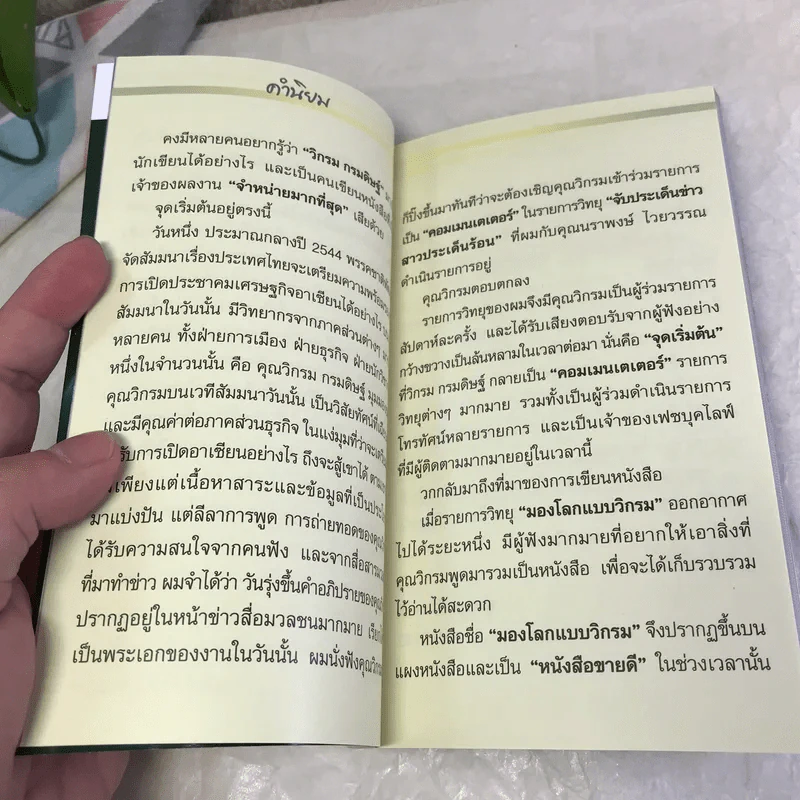 คำนิยม
คงมีหลายคนอยากรู้ว่า “วิกรม กรมดิษฐ์”
นักเขียนได้อย่างไร และเป็นคนเขียนหนังสือ
เจ้าของผลงาน “จำหน่ายมากที่สุด” เสียด้วย
จุดเริ่มต้นอยู่ตรงนี้
วันหนึ่ง ประมาณกลางปี 2544
จัดสัมมนาเรื่องประเทศไทยจะเตรียมความพร้อม
การเปิดประชาคมเศรษฐกิจอาเซียนได้อย่างไร
สัมมนาในวันนั้น มีวิทยากรจากภาคส่วนต่างๆ
หลายคน ทั้งฝ่ายการเมือง ฝ่ายธุรกิจ
หนึ่งในจำนวนนั้น คือ คุณวิกรม กรมดิษฐ์
คุณวิกรมบนเวทีสัมมนาวันนั้น เป็นวิสัยทัศน์
และมีคุณค่าต่อภาคส่วนธุรกิจ ในแง่มุมที่ว่าจะ
รับการเปิดอาเซียนอย่างไร ถึงจะสู้เขาได้
เพียงแต่เนื้อหาสาระและข้อมูลที่เป็น
มาแบ่งปัน แต่ลีลาการพูด การถ่ายทอดของ
ได้รับความสนใจจากคนฟัง และจากสื่อสาร
ที่มาทำข่าว ผมจำได้ว่า วันรุ่งขึ้นคำอภิปรายของ
ปรากฏอยู่ในหน้าข่าวสื่อมวลชนมากมาย
เป็นพระเอกของงานในวันนั้น ผมนั่งฟังคุณ
ก็ปิ๊งขึ้นมาทันทีว่าจะต้องเชิญคุณวิกรมเข้าร่วมรายการ
เป็น “คอมเมนเตเตอร์” ในรายการวิทยุ “จับประเด็นข่าว
สาวประเด็นร้อน” ที่ผมกับคุณนราพงษ์ ไวยวรรณ
ดำเนินรายการอยู่
คุณวิกรมตอบตกลง
รายการวิทยุของผมจึงมีคุณวิกรมเป็นผู้ร่วมรายการ
สัปดาห์ละครั้ง และได้รับเสียงตอบรับจากผู้ฟังอย่าง
กว้างขวางเป็นล้นหลามในเวลาต่อมา นั่นคือ “จุดเริ่มต้น”
ที่วิกรม กรมดิษฐ์ กลายเป็น “คอมเมนเตเตอร์” รายการ
วิทยุต่างๆ มากมาย รวมทั้งเป็นผู้ร่วมดำเนินรายการ
โทรทัศน์หลายรายการ และเป็นเจ้าของเฟซบุคไลฟ์
ที่มีผู้ติดตามมากมายอยู่ในเวลานี้
วกกลับมาถึงที่มาของการเขียนหนังสือ
เมื่อรายการวิทยุ “มองโลกแบบวิกรม” ออกอากาศ
ไปได้ระยะหนึ่ง มีผู้ฟังมากมายที่อยากให้เอาสิ่งที่
คุณวิกรมพูดมารวมเป็นหนังสือ เพื่อจะได้เก็บรวบรวม
ไว้อ่านได้สะดวก
หนังสือชื่อ “มองโลกแบบวิกรม” จึงปรากฏขึ้นบน
แผงหนังสือและเป็น “หนังสือขายดี” ในช่วงเวลานั้น